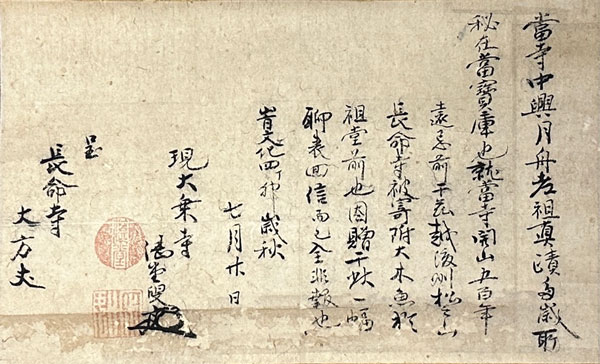 當寺中興月舟老祖真蹟多歳所
秘在當寶庫也就當寺開山五百年
遠忌前于茲越後州松之山
長命寺被寄附大木魚於
祖堂前也因贈于此一幅
聊表回信而已全非報也
旹文化四丁卯歳秋
七月廿日
現大乗寺
愚堂叟
呈
長命寺
大方丈